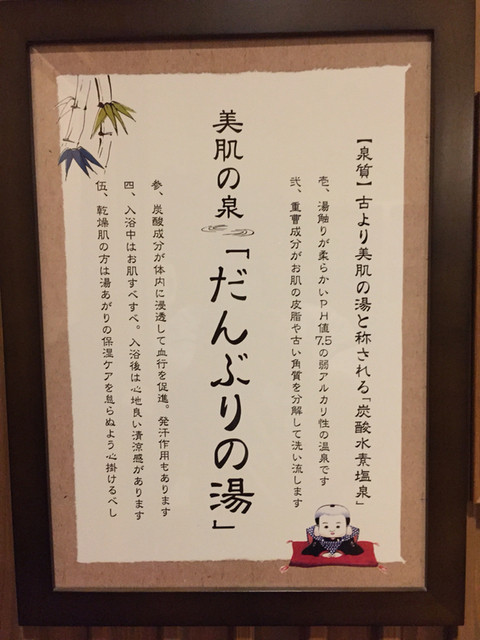 【泉質】古より美肌の湯と称される「炭酸水素塩泉」
壱、湯触りが柔らかいPH値7.5の弱アルカリ性の温泉です
弐、重曹成分がお肌の皮脂や古い角質を分解して洗い流します
美肌の泉「だんぶりの湯」
参、炭酸成分が体内に浸透して血行を促進。発汗作用もあります
四、入浴中はお肌すべすべ。入浴後は心地良い清涼感があります
伍、乾燥肌の方は湯あがりの保湿ケアを怠らぬよう心掛けるべし